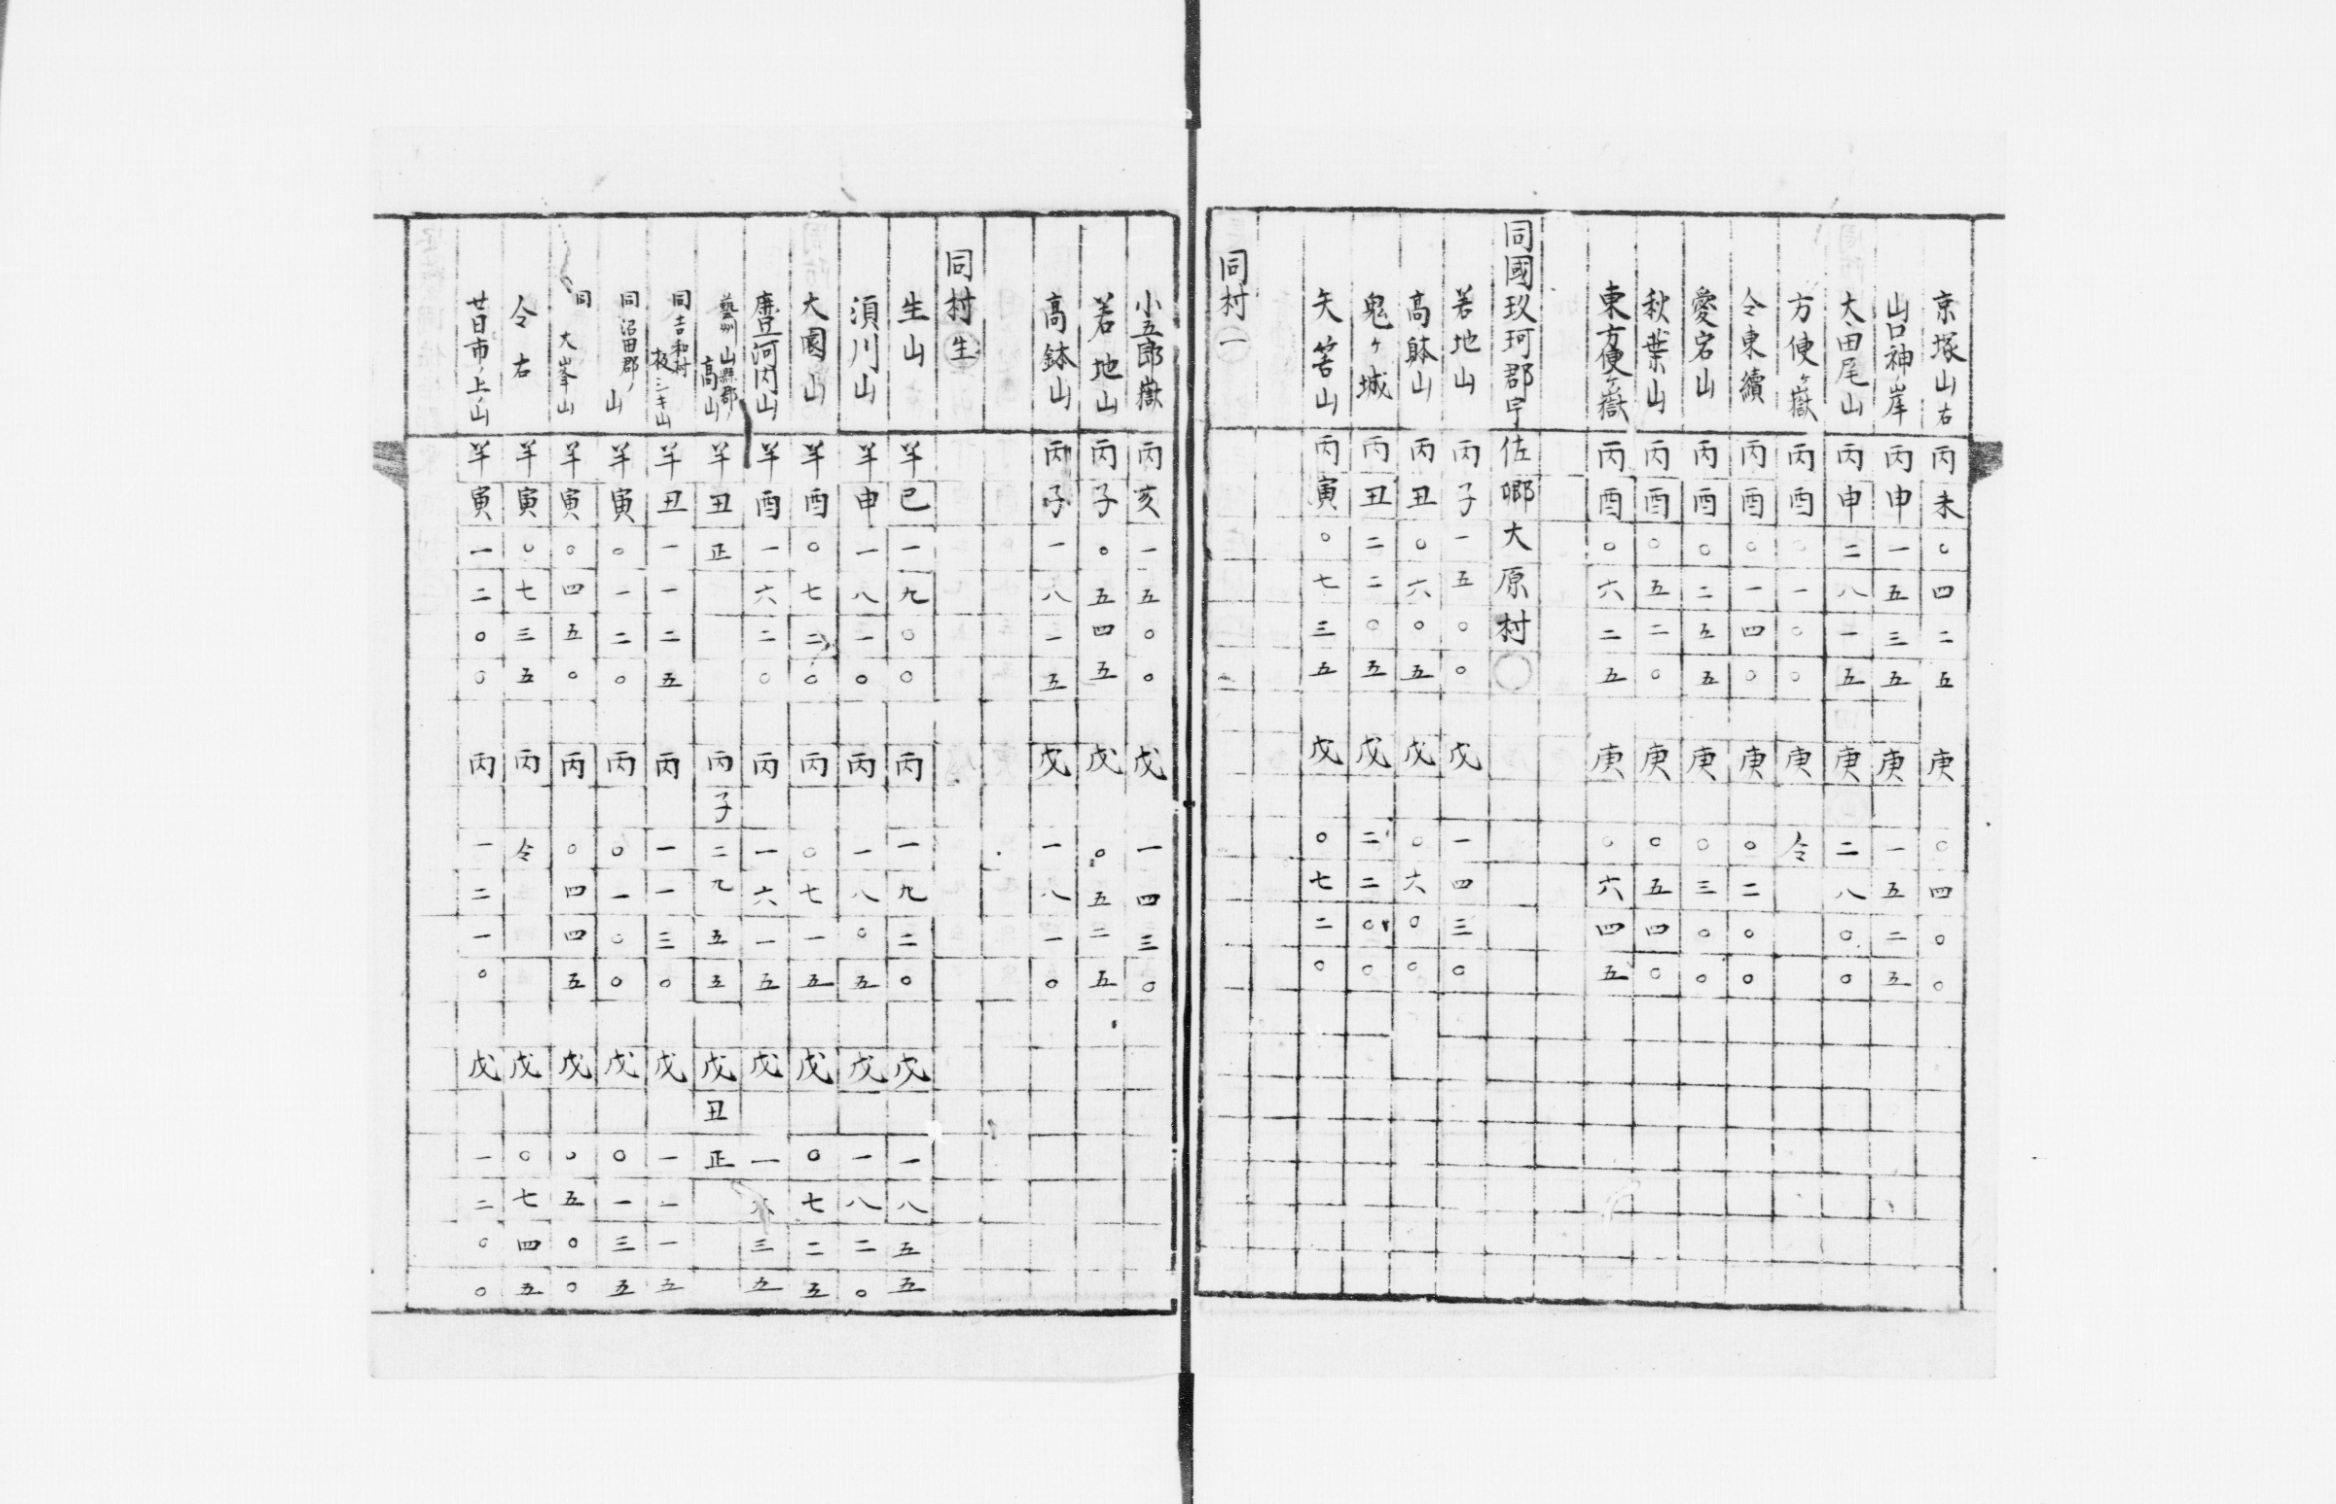 京塚山右 丙未〇四二五 庚〇四〇〇
山口神ノ岸 丙申一五三五 庚一五二五
大田尾山 丙申二八一五 庚二八〇〇
方便ヶ嶽 丙酉〇一〇〇 庚仝
仝東續 丙酉〇一四〇 庚〇二〇〇
愛宕山 丙酉〇二五五 庚〇三〇〇
秋葉山 丙酉〇五二〇 庚〇五四〇
東方便ヶ嶽 丙酉〇六二五 庚〇六四五
同國玖珂郡宇佐郷大原村〇
若地山 丙子一五〇〇 戊一四三〇
高鉢山 丙丑〇六〇五 戊〇六〇〇
鬼ヶ城 丙丑二二〇五 戊二二〇〇
矢筈山 丙寅〇七三五 戊〇七二〇
同村一
小五郎嶽 丙亥一五〇〇 戊一四三〇
若地山 丙子〇五四五 戊〇五二五
高鉢山 丙子一八一五 戊一八一〇
同村生
生山 羊巳一九〇〇 丙一九二〇 戊一八五五
須川山 羊申一八一〇 丙一八〇五 戊一八二〇
大圀山 羊酉〇七二〇 丙〇七一五 戊〇七二五
麈河内山 羊酉一六二〇 丙一六一五 戊一六三五
藝州山縣郡高山 羊丑正 丙子二九五五 戊丑正
同吉和村 山 羊丑一一二五 丙一一三〇 戊一一一五
同沼田郡ノ山 羊寅〇一二〇 丙〇一〇〇 戊〇一三五
同大峯山 羊寅〇四五〇 丙〇四四五 戊〇五〇〇
仝右 羊寅〇七三五 丙仝 戊〇七四五
廿日市ノ上ノ山 羊寅一二〇〇 丙一二一〇 戊一二〇〇